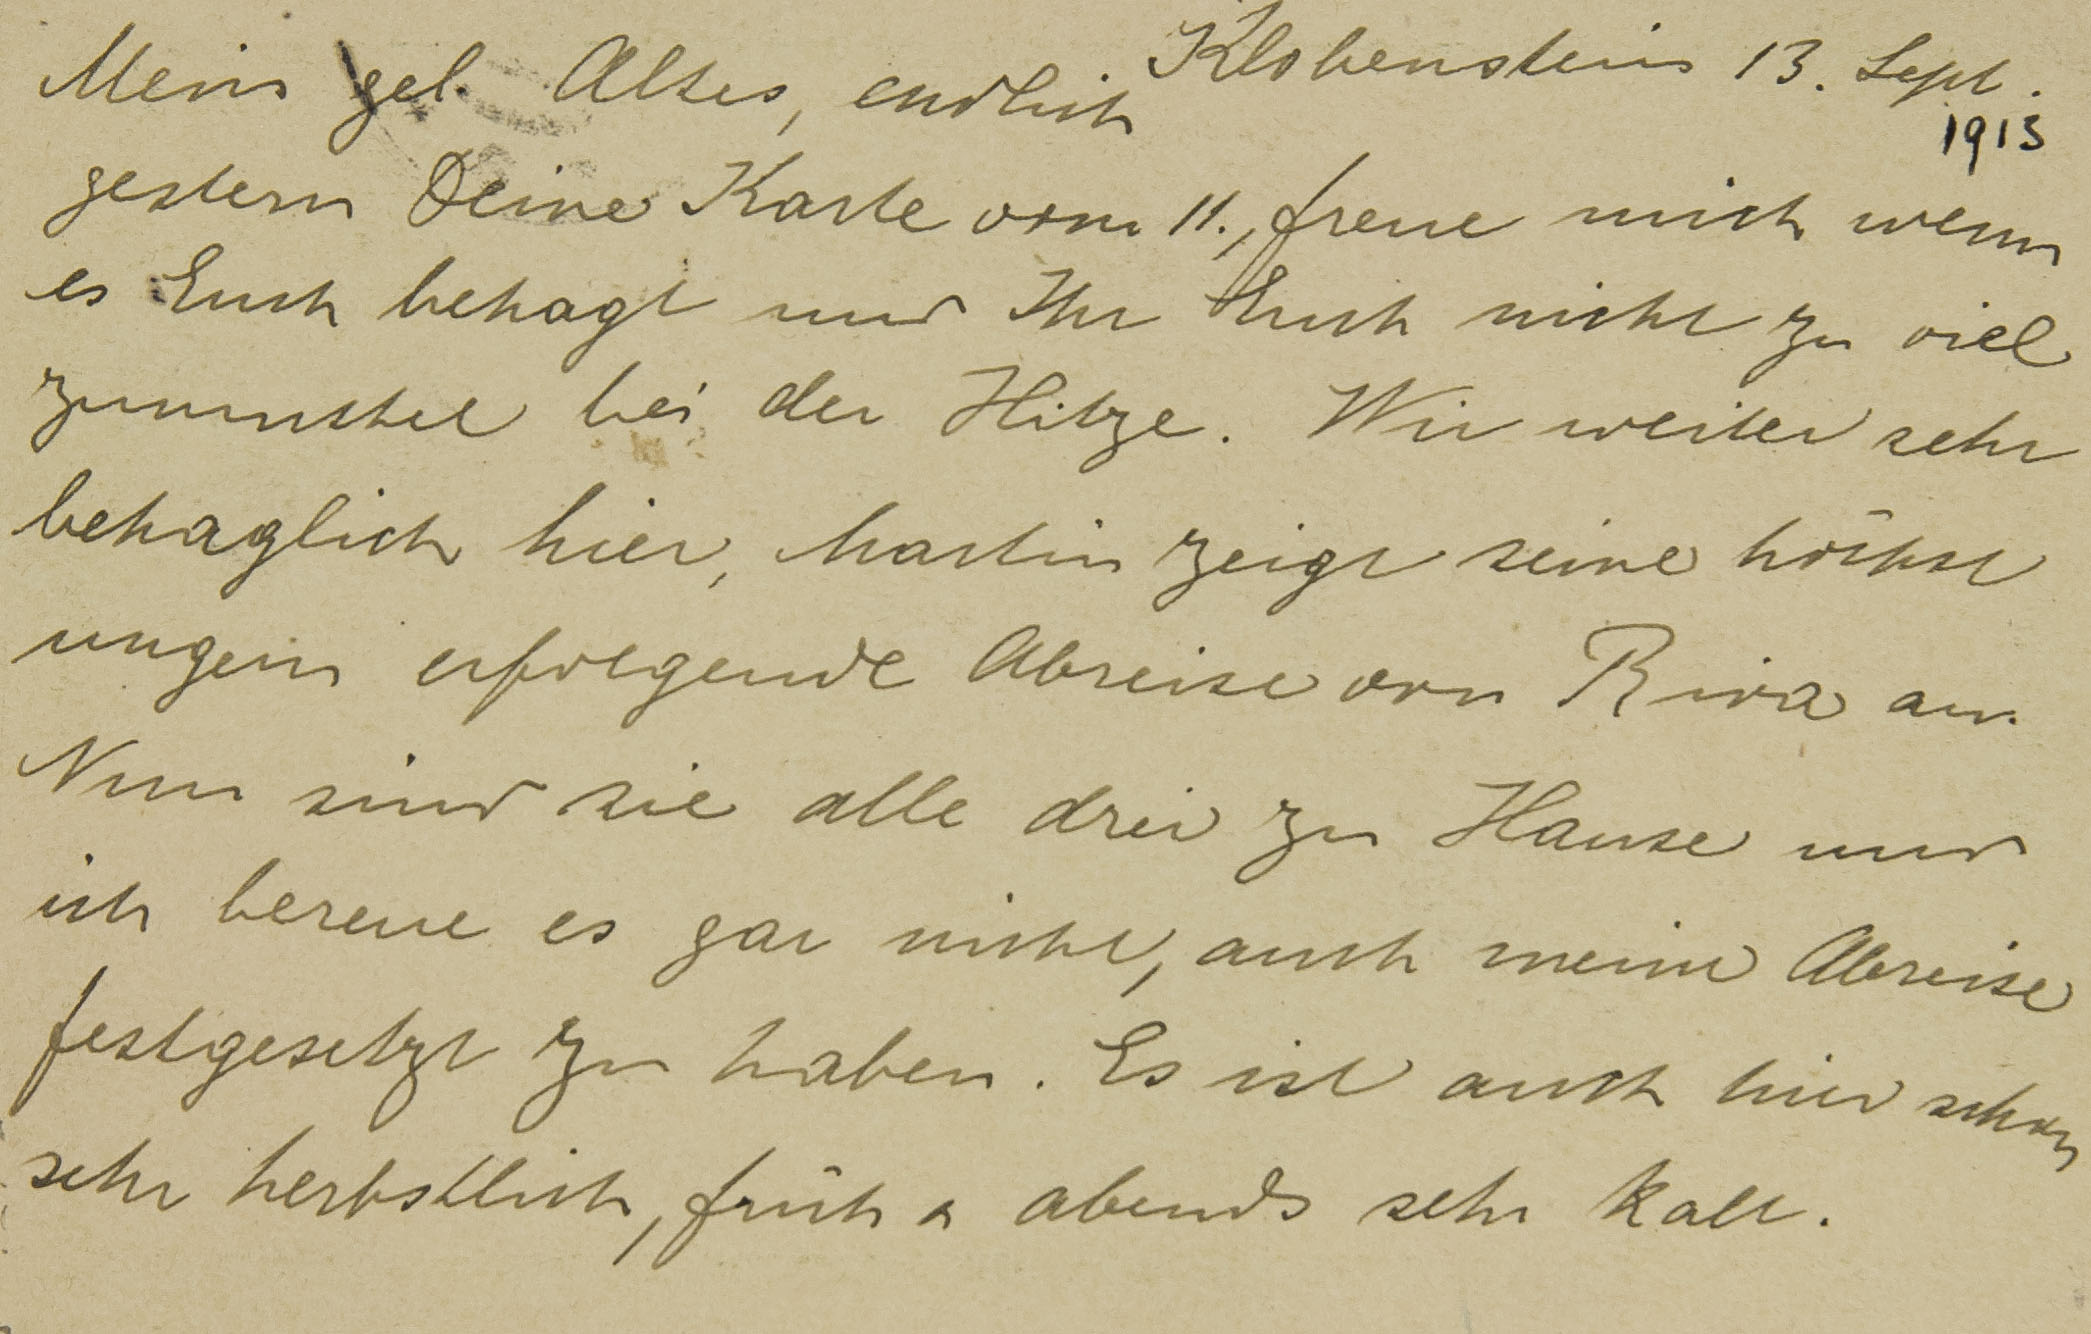 Klobenstein 13. Sept.
1913
Mein gel. Altes, endlich
gestern Deine Karte vom 11., freue mich wenn
es Euch behagt und Ihr Euch nicht zu viel
zumuthet bei der Hitze. Wir weiter sehr
behaglich hier, Martin zeigt seine höchst
ungern erfolgende Abreise von Riva an.
Nun sind sie alle drei zu Hause und
ich bereue es gar nicht, auch meine Abreise
festgesetzt zu haben. Es ist auch hier schon
sehr herbstlich, früh & abends sehr kalt.